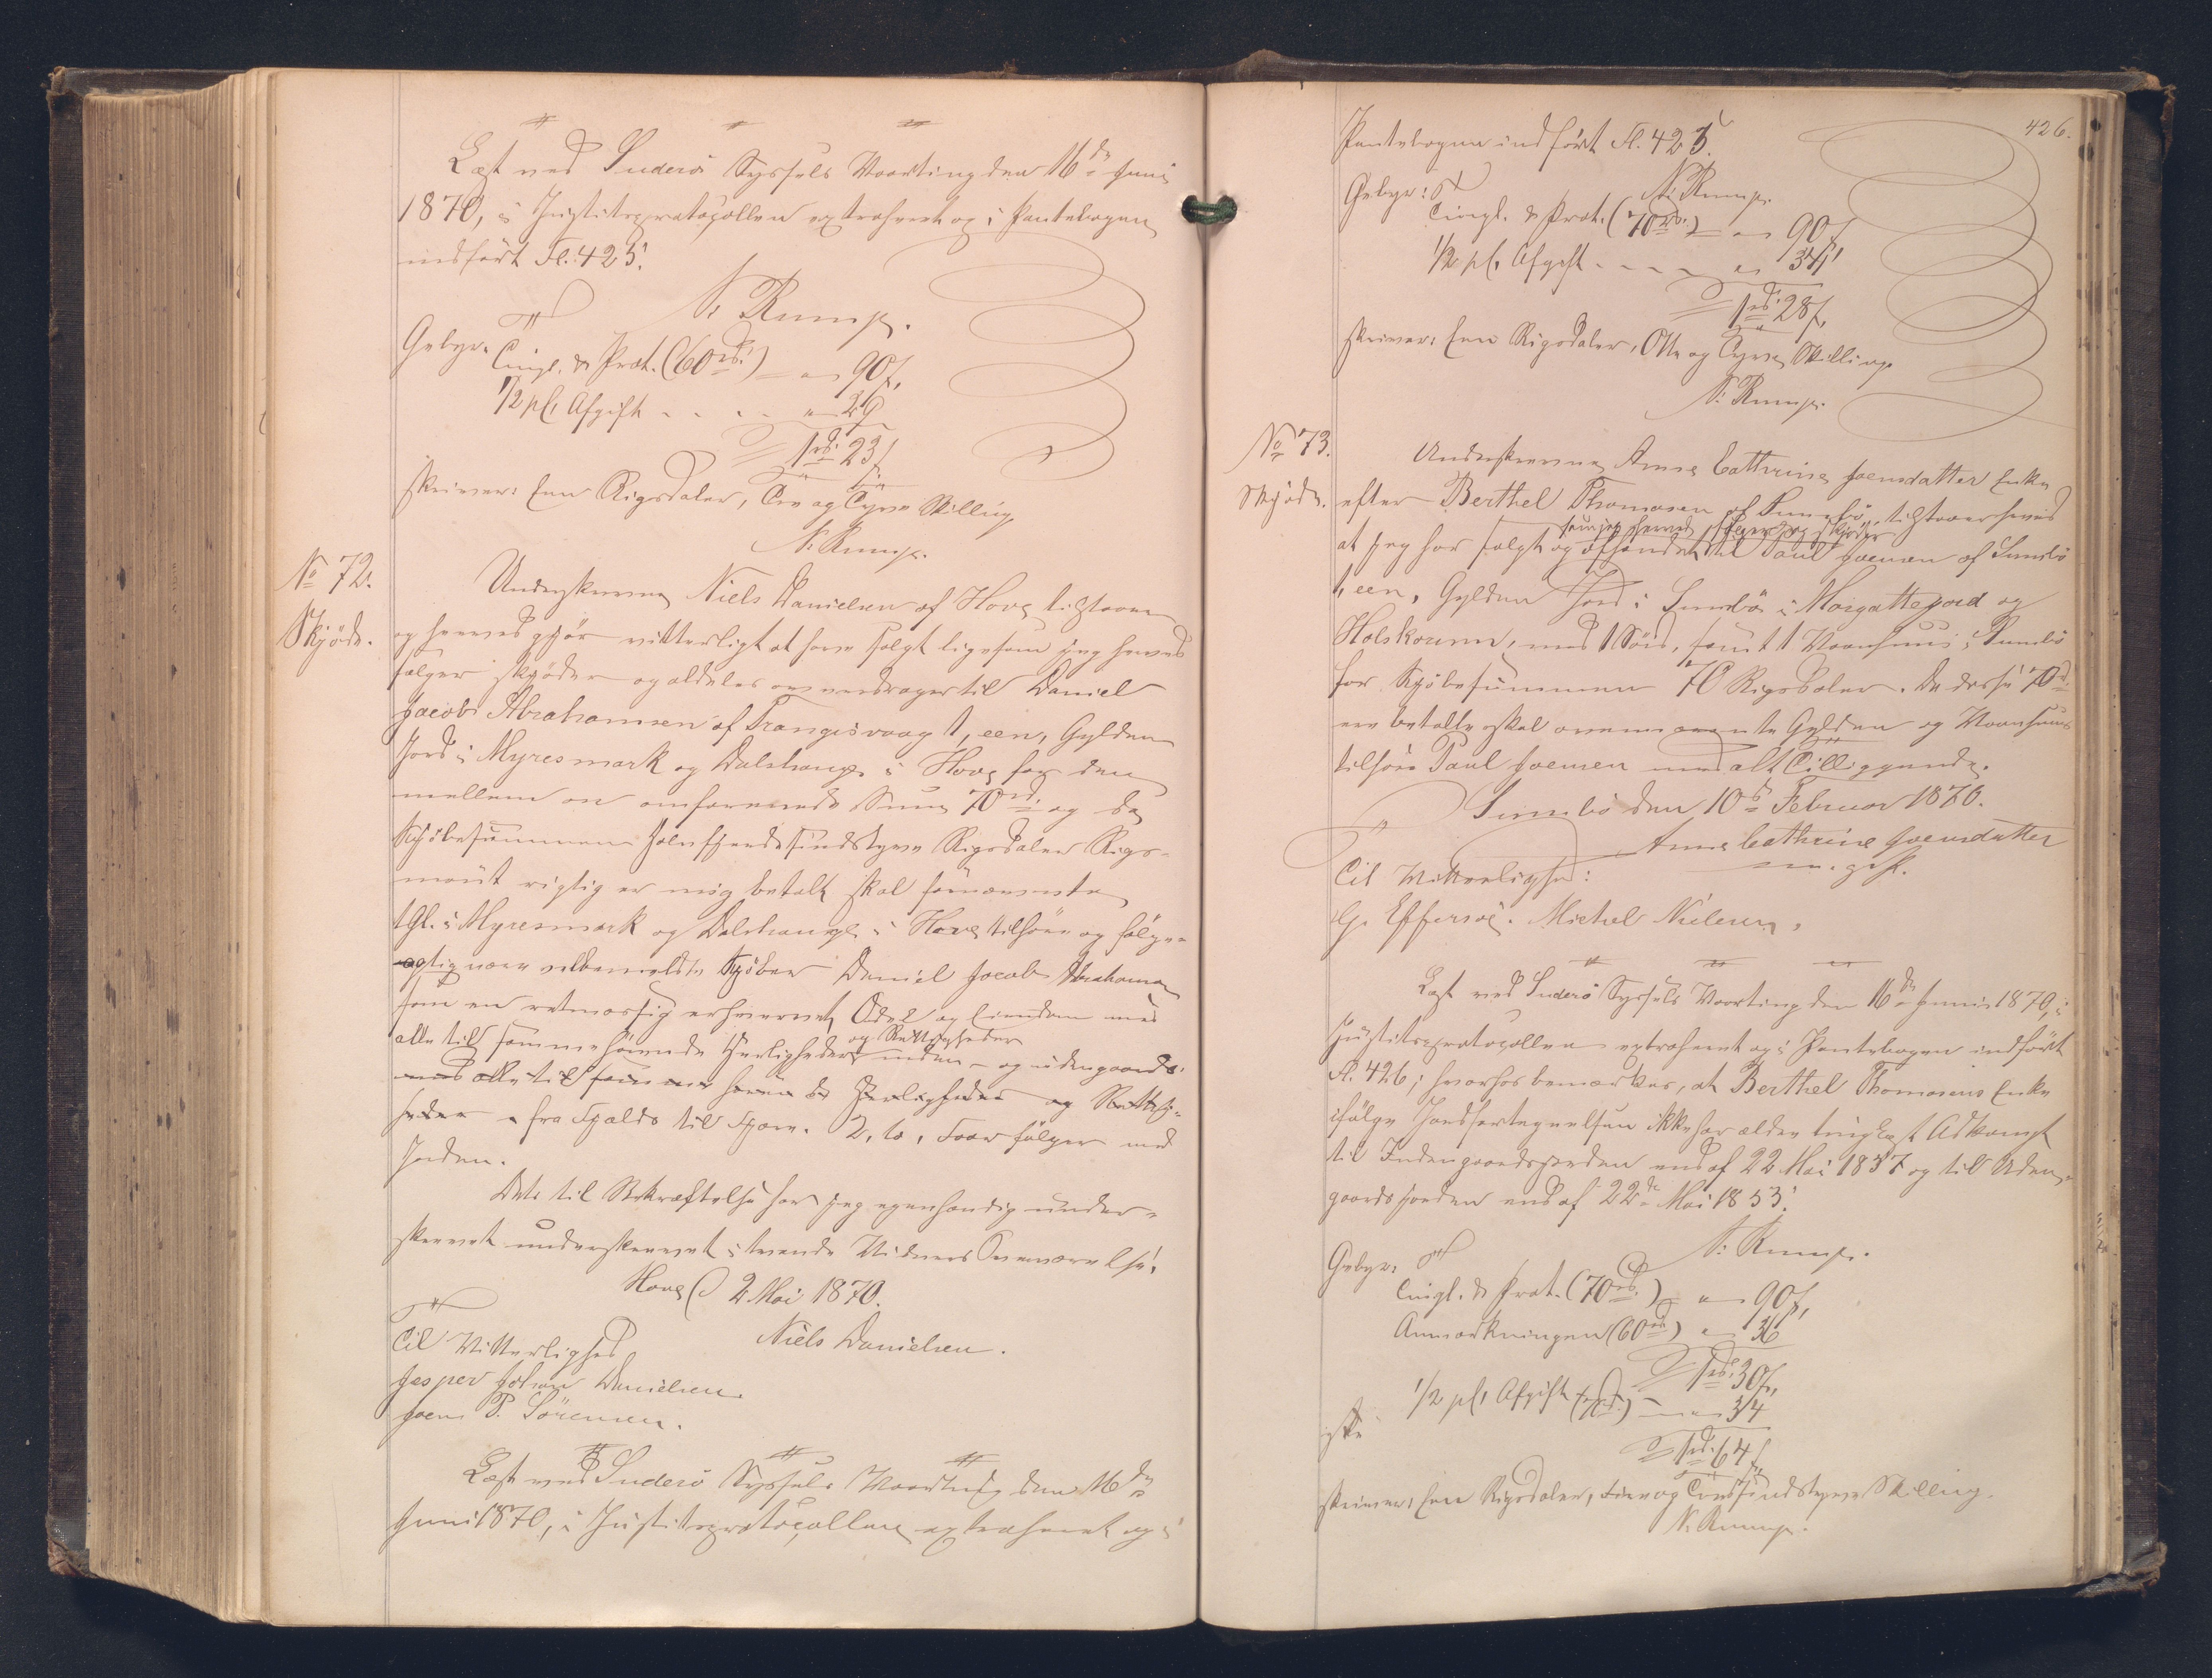 Læst ved Suderö Syssels Vaarting den 16de Juni
1870, i Justitsprotocollen extraheret og i Pantebogen
indført Fl. 425.
N. Rump.
Gebyr:
Tingl. & Prot. (60rd.) " 90 f,
1/2 pCt Afgift - - - " 29
1rd. 23 f
skriver: Een Rigsdaler, Tre og Tyve Skilling
N. Rump.
No 72.
Skjöde.
Underskrevne Niels Danielsen af Hove tilstaaer
og herved gjör vitterligt at have solgt ligesom jeg herved
sælger skjöder og aldeles overdrager til Daniel
Jacob Abrahamsen af Trangisvaag 1, een, Gylden
Jord i Myresmark og Dalshauge i Hove for den
mellem os omforenede Sum 70rd. og da
Kjöbesummen halvfjerdsindstyve Rigsdaler Rigs-
mönt rigtig er mig betalt skal fornævnte
1 Gl. i Myresmark og Dalshauge i Hove tilhöre og fölge-
agtig være velbemeldte Kjöber Daniel Jacob Abrahamsen
som en retmæssig erhvervet Odel og Eiendom med
alle til samme hörende Herligheder og Rettigheder inden- og udengaards
med alle til samme hörende Herligheder og Rettig-
heder - fra Fjelds til Fjære. 2, to, Faar følger med
Jorden.
Dets til Bekræftelse har jeg egenhændig under-
skrevet underskrevet i tvende Vidners Overværelse.
Hove d 2 Mai 1870.
Niels Danielsen.
Til Vitterlighed
Jesper Johan Danielsen.
Joen P. Sörensen.
Læst ved Suderö Syssels Vaarting den 16de
Juni 1870, i Justitsprotocollen extraheret og i
426.
Pantebogen indført Fl. 425.
N. Rump.
Gebyr:
Tingl. & Prot. (70rd.) " 90 f
1/2 pCt Afgift - - - " 34
1rd. 28 f,
skriver: Een Rigsdaler, Otte og Tyve Skilling
N. Rump.
No 73.
Skjöde.
Underskrevne Anne Cathrine Joensdatter Enke
efter Berthel Thomasen af Sumbö, tilstaaer herved
at jeg har solgt og afhændet som jeg herved sælger og skjöder til Paul Joensen af Sumbö
1, een, Gylden Jord i Sumbö i Morgattejord og
Holskorum, med 1 Söid, samt 1 Vaanhuus i Sumbö
for Kjöbesummen 70 Rigsdaler. Da disse 70rd.
ere betalte skal ovennævnte Gylden og Vaanhuus
tilhöre Paul Joensen med alt Tilliggende.
Sumbö den 10de Februar 1870.
Anne Cathrine Joensdatter
m. p. P.
Til Vitterlighed:
G. Effersöe. Michel Nielsen.
Læst ved Suderö Syssels Vaarting den 16de Juni 1870, i
Justitsprotocollen extraheret og i Pantebogen indført
Fl. 426; hvorhos bemærkes, at Berthel Thomasens Enke
ifølge Jordfortegnelsen ikke har ældre tinglæst Adkomst
til Indengaardsjorden end af 22 Mai 1857 og til Uden-
gaardsjorden end af 22de Mai 1853.
N. Rump.
Gebyr:
Tingl. & Prot. (70rd.) " 90 f,
Anmærkningen (60rd) " 36
1rd. 30 f,
1/2 pCt Afgift (70rd.) " 34
1rd. 64 f
skriver: Een Rigsdaler, Fire og Tredsindstyve Skilling.
N. Rump.